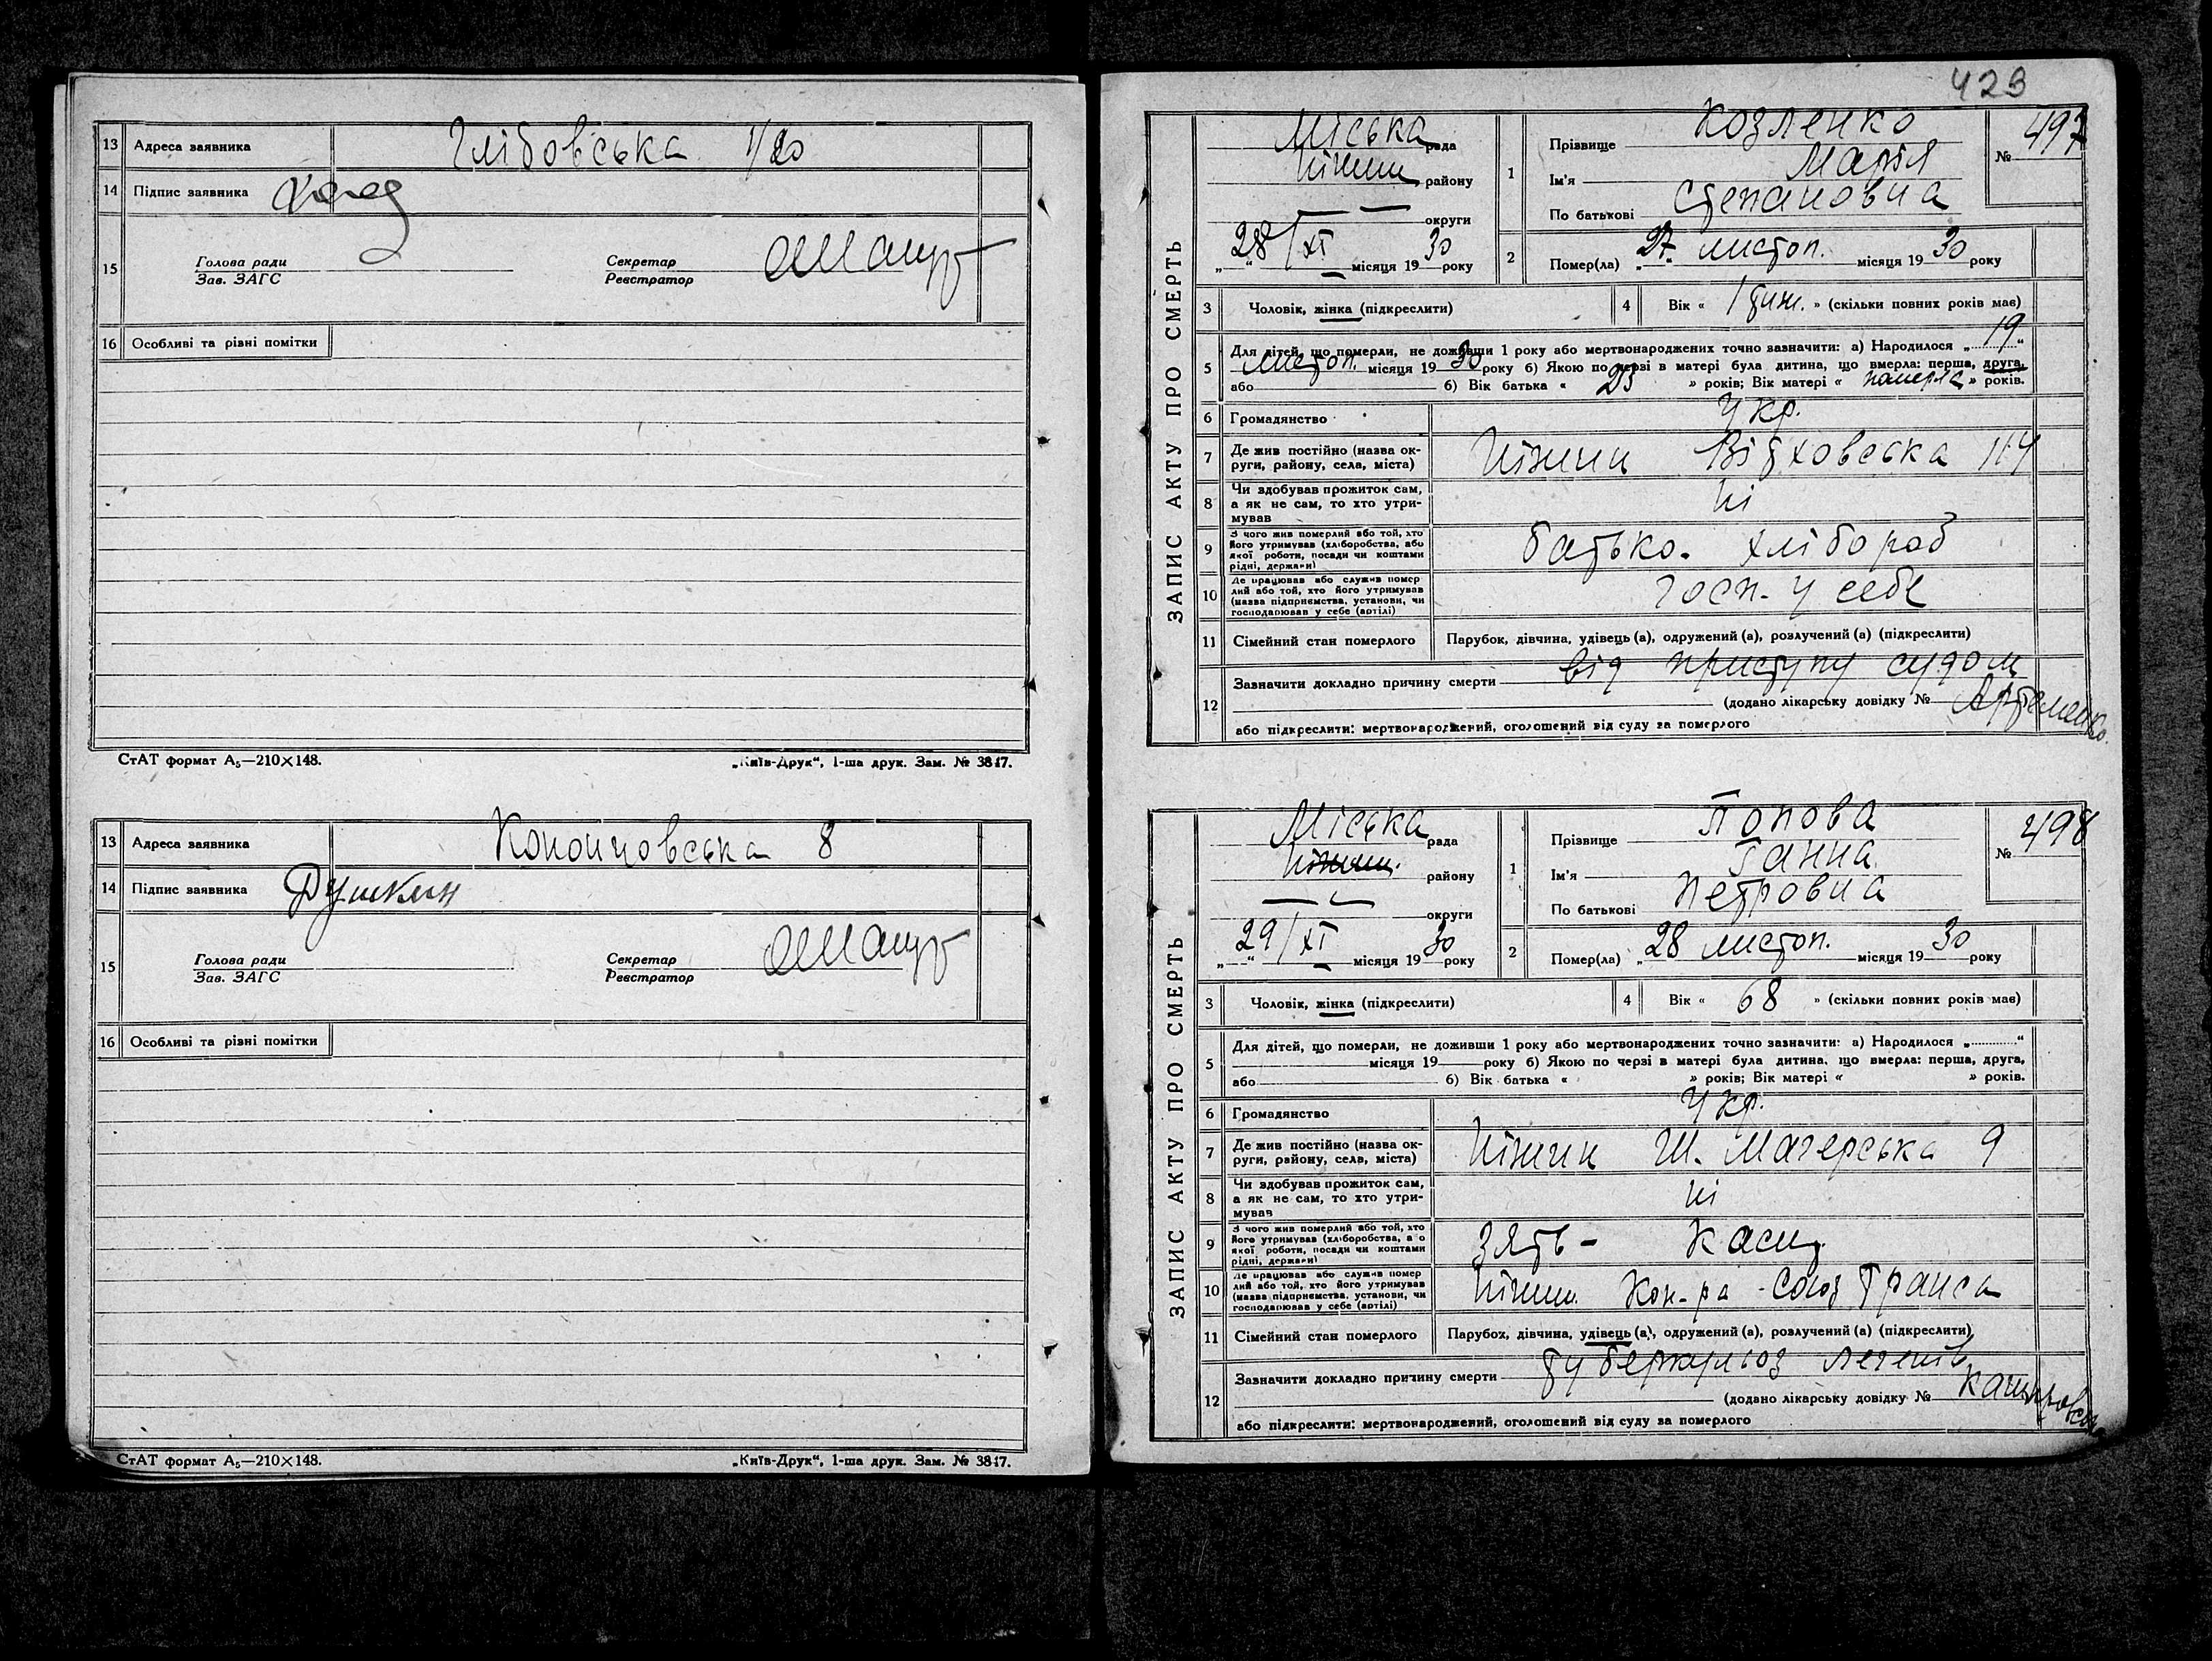 13 Адреса заявника Глібовська 1/20
14 Підпис заявника
15 Голова ради Секретар
Зав. ЗАГС Реєстратор
16 Особливі та різні помітки
СтАТ формат А₅—210×148. „Київ-Друк“, 1-ша друк. Зам. № 3817.
13 Адреса заявника 8
14 Підпис заявника Душкин
15 Голова ради Секретар
Зав. ЗАГС Реєстратор
16 Особливі та різні помітки
СтАТ формат А₅—210×148. „Київ-Друк“, 1-ша друк. Зам. № 3817.
423
ЗАПИС АКТУ ПРО СМЕРТЬ
Міська рада
Ніжин. району
округи
„28“ XI місяця 1930 року
1 Прізвище Козленко
Ім'я Марія
По батькові Степановна
№ 497
2 Помер(ла) „27. листоп. місяця 1930 року
3 Чоловік, жінка (підкреслити)
4 Вік « 1 тиж. » (скільки повних років мав)
5 Для дітей, що померли, не доживши 1 року або мертвонароджених точно зазначити: а) Народилося „19“
листоп. місяця 1930 року б) Якою по черзі в матері була дитина, що вмерла: перша, друга,
або б) Вік батька « 23 » років; Вік матері « померла » років.
6 Громадянство Укр.
7 Де жив постійно (назва ок-
руги, району, села, міста) Ніжин 114
8 Чи здобував прожиток сам,
а як не сам, то хто утри-
мував ні
9 З чого жив померлий або той, хто
його утримував (хліборобства, або
якої роботи, посади чи коштами
рідні, держави) батько. хлібороб
10 Де працював або служив помер
лий або той, хто його утримував
(назва підприємства, установи, чи
господарював у себе (артілі) госп. у себе
11 Сімейний стан померлого Парубок, дівчина, удівець (а), одружений (а), розлучений (а) (підкреслити)
12 Зазначити докладно причину смерти від приступу судом
(додано лікарську довідку № Артеменко.
або підкреслити: мертвонароджений, оголошений від суду за померлого
ЗАПИС АКТУ ПРО СМЕРТЬ
Міська рада
Ніжин. району
округи
„29“ XI місяця 1930 року
1 Прізвище Попова
Ім'я Ганна
По батькові Петровна
№ 498
2 Помер(ла) „28 листоп. місяця 1930 року
3 Чоловік, жінка (підкреслити)
4 Вік « 68 » (скільки повних років мав)
5 Для дітей, що померли, не доживши 1 року або мертвонароджених точно зазначити: а) Народилося „ “
місяця 19 року б) Якою по черзі в матері була дитина, що вмерла: перша, друга,
або б) Вік батька « » років; Вік матері « » років.
6 Громадянство Укр.
7 Де жив постійно (назва ок-
руги, району, села, міста) Ніжин Ш. Магерська 9
8 Чи здобував прожиток сам,
а як не сам, то хто утри-
мував ні
9 З чого жив померлий або той, хто
його утримував (хліборобства, або
якої роботи, посади чи коштами
рідні, держави) зять - касир.
10 Де працював або служив помер
лий або той, хто його утримував
(назва підприємства, установи, чи
господарював у себе (артілі) Ніжин. Кон-ра Союзтранса
11 Сімейний стан померлого Парубок, дівчина, удівець (а), одружений (а), розлучений (а) (підкреслити)
12 Зазначити докладно причину смерти туберкульоз легенів
(додано лікарську довідку №
або підкреслити: мертвонароджений, оголошений від суду за померлого